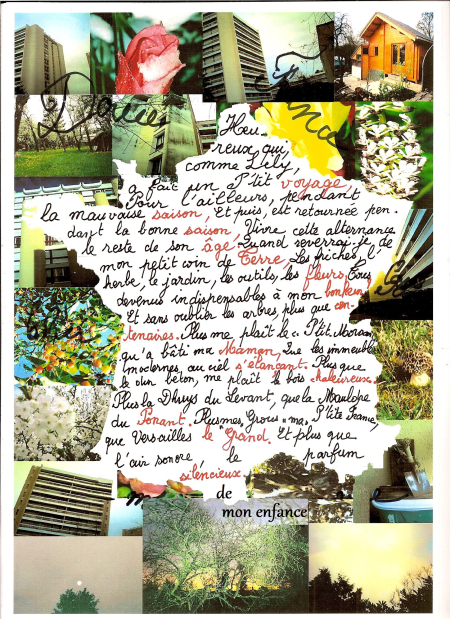 Heu-
reux, qui
comme Lily,
a fait un P'tit voyage,
Pour l'ailleurs, pendant
la mauvaise saison, Et puis, est retournée pen-
dant la bonne saison, Vivre cette alternance
le reste de son âge. Quand reverrai-je, de
mon petit coin de Terre, Les friches, l'
herbe, le jardin, les outils, les fleurs, Tous
devenus indispensables à mon bonheur,
Et sans oublier les arbres, plus que cen-
tenaires. Plus me plaît le « P'tit
qu'a bâti ma Maman, Que les immeubles
modernes, au ciel s'élançant. Plus que
le dur béton, me plaît le bois chaleureux.
Plus la Dhuys du Levant, que la
du Ponant. Plus mes, Grous « ma » P'tite France,
que Versailles le Grand. Et plus que
l'air sonore, le parfum
silencieux
de
mon enfance